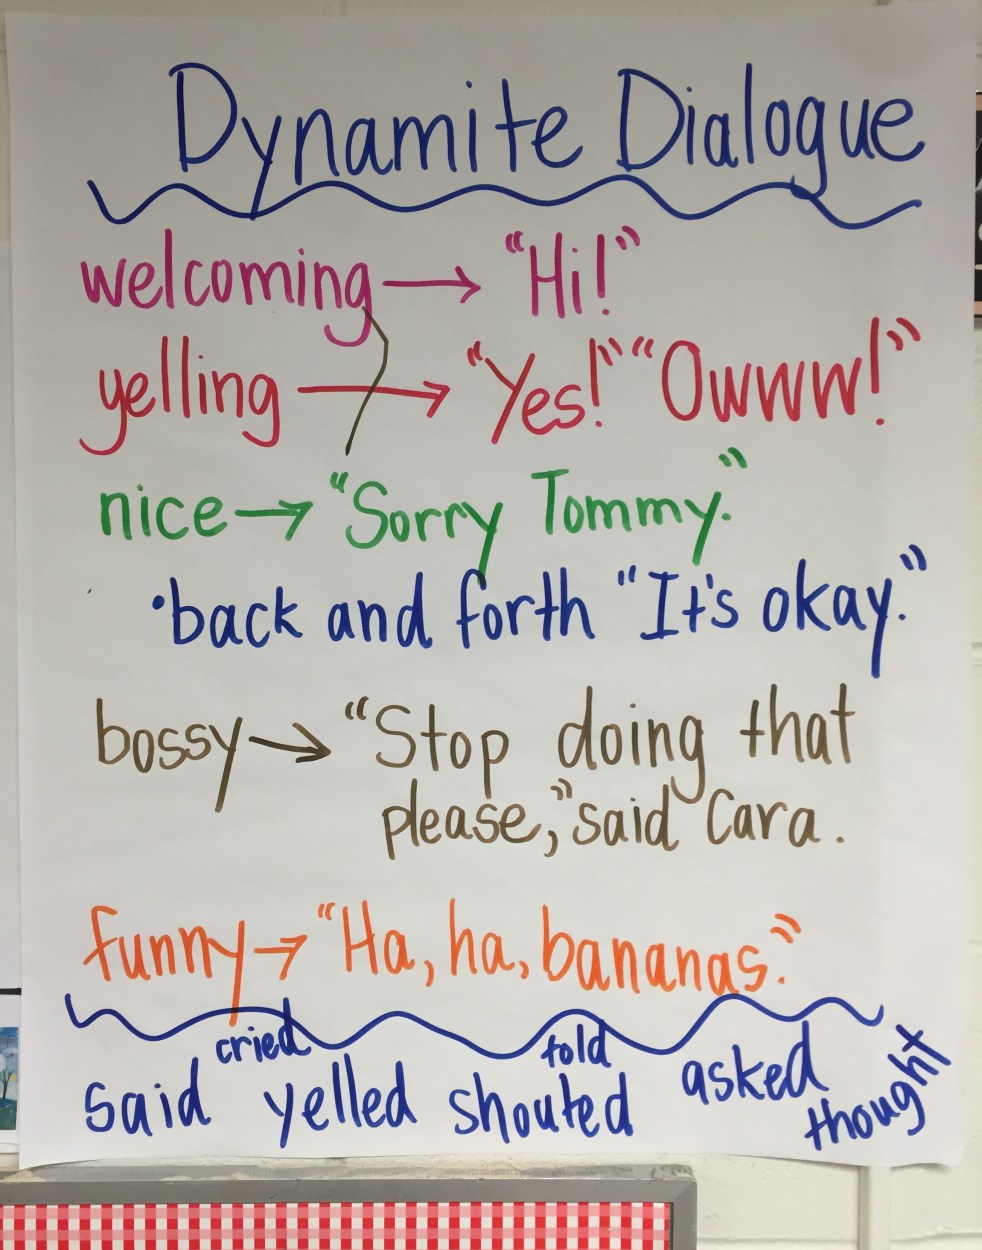 Dynamite Dialogue
welcoming → "Hi!"
yelling → "Yes!" "Owww!"
nice → "Sorry Tommy."
•back and forth "It's okay."
bossy → "Stop doing that
please," said Cara.
funny → "Ha, ha, bananas."
cried told
said yelled shouted asked thought